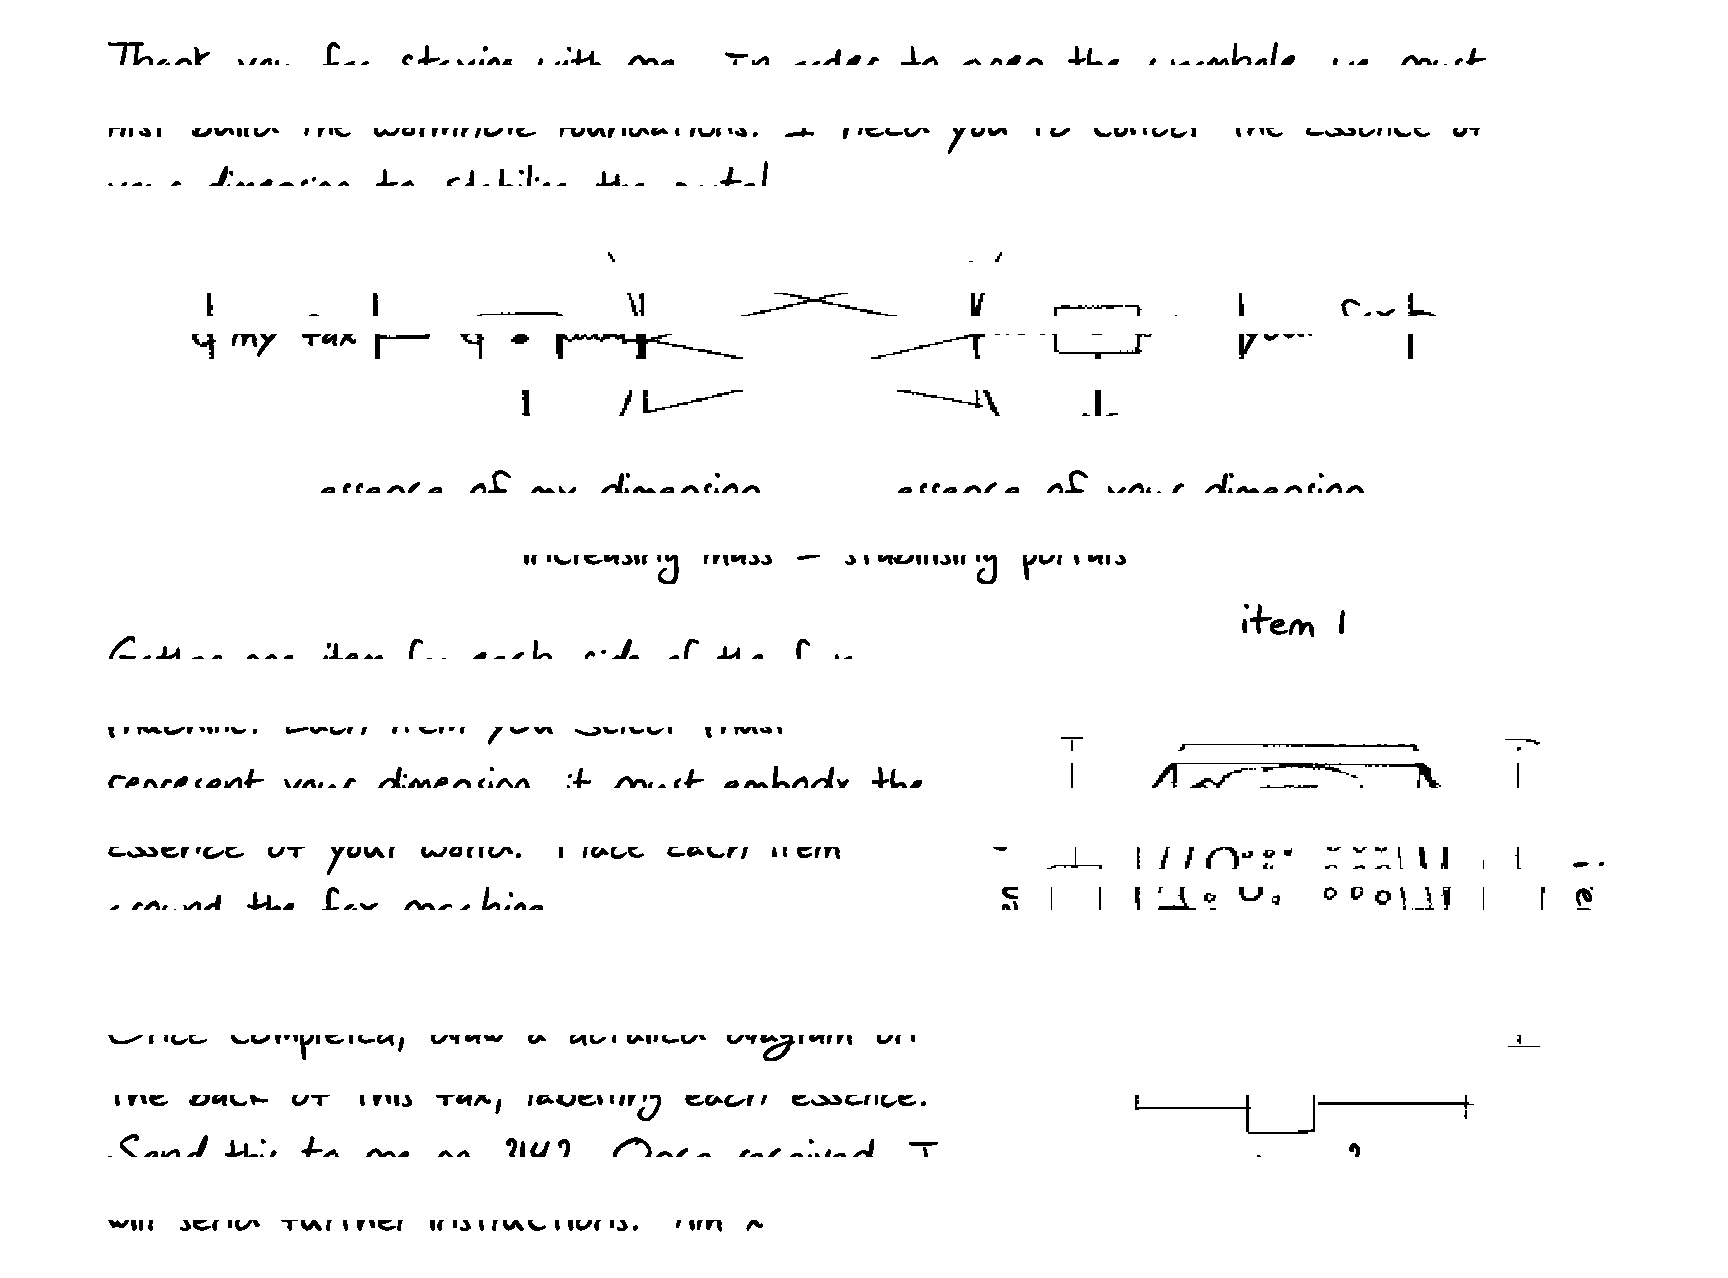 Thank you for staying with me. In order to open the wormhole, we must
first build the wormhole foundations. I need you to collect the essence of
your dimension to stabilise the portal
my fax
your
essence of my dimension essence of your dimension
increasing mass = stabilising portals
item 1
Gather one item for each side of the fax
machine. Each item you select must
represent your dimension, it must embody the
essence of your world. Place each item
around the fax machine
Once completed, draw a detailed diagram on
the back of this fax, labelling each essence.
Send this to me on Once received, I
will send further instructions.